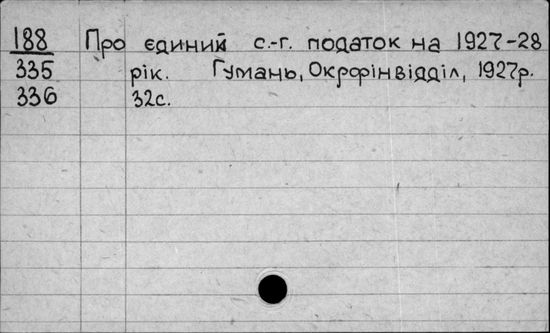 188 Про єдиний с.-г. податок на 1927-28
335 рік. Гумань, Окрфінвідділ, 1927р.
336 32с.